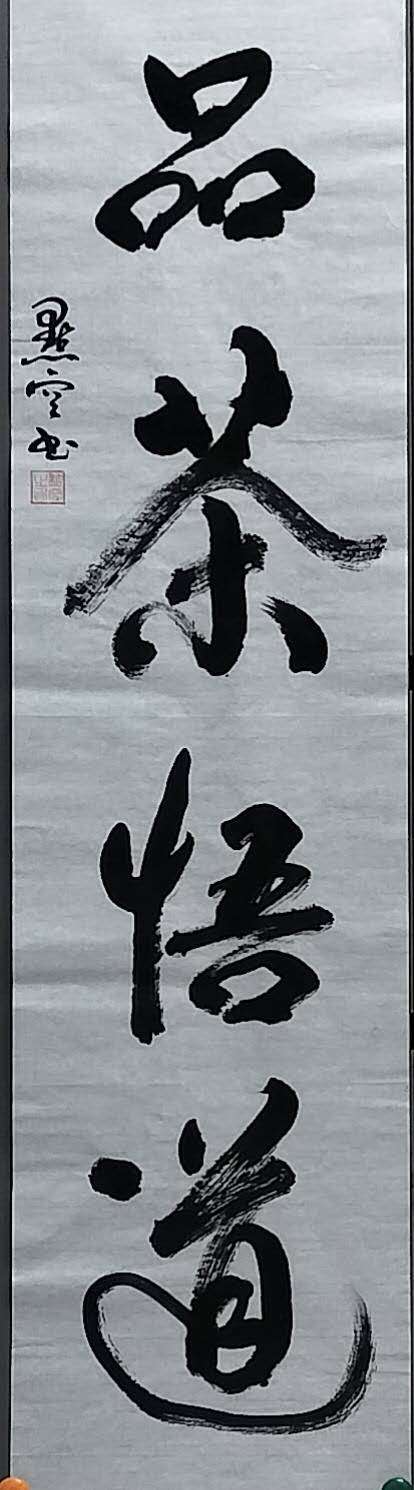 品茶悟道
默空书